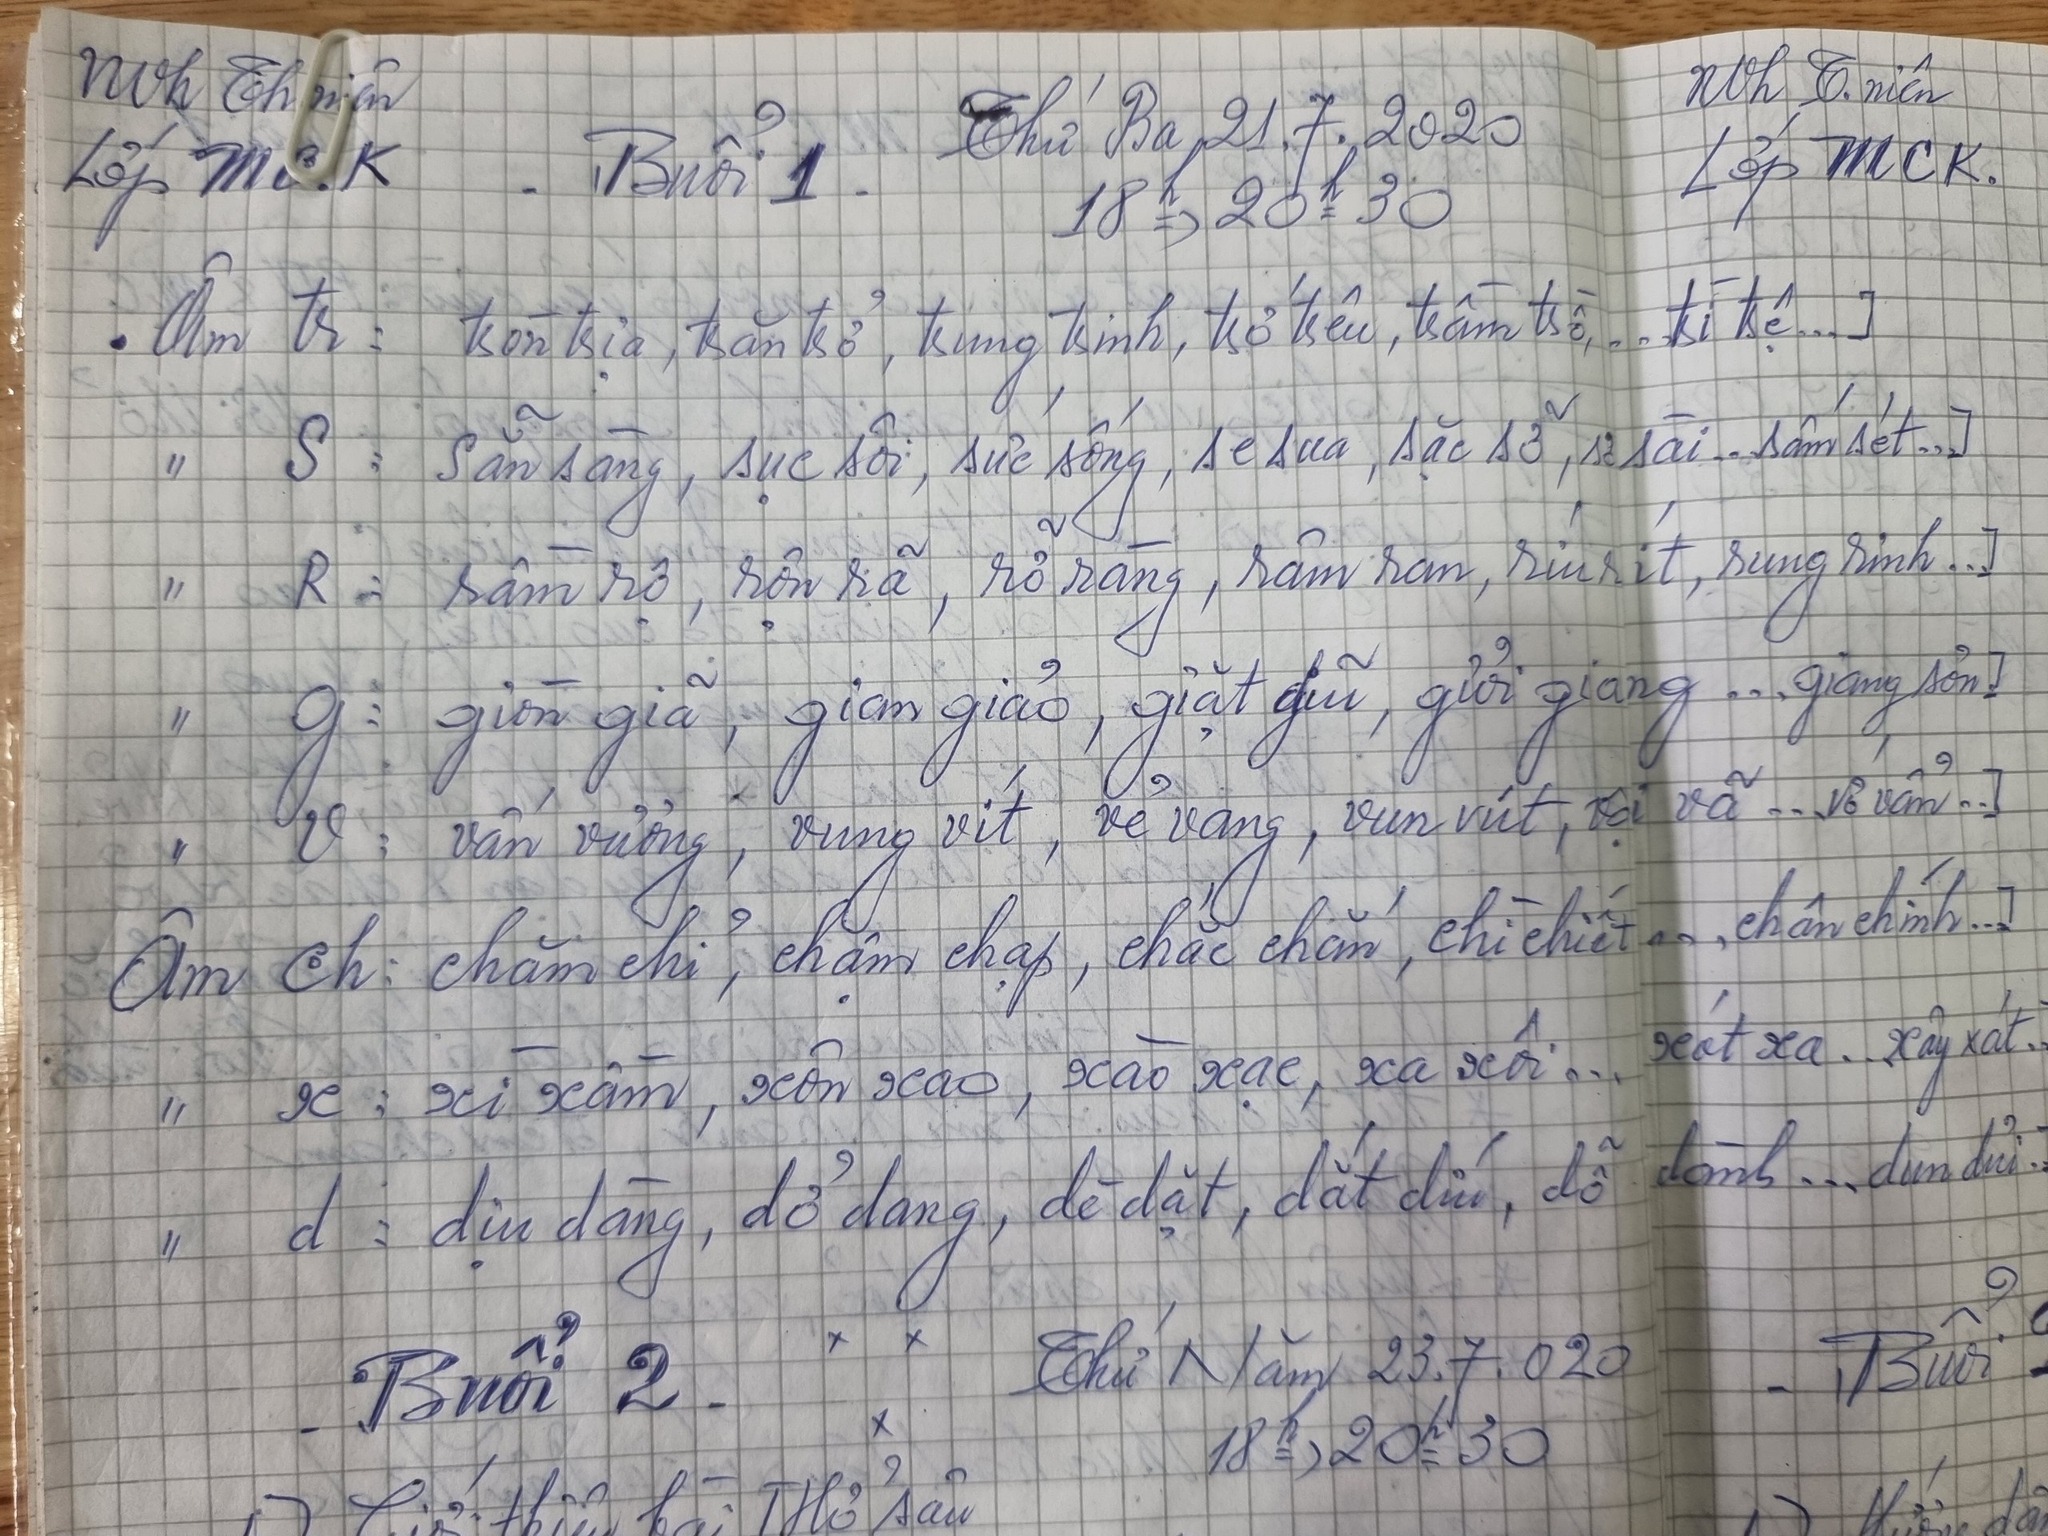 NVh Th niên
Lớp MC.K - Buổi 1 - Thứ Ba 21.7.2020
18h → 20h30
. Âm tr : tròn trịa, trăn trở, trung trinh, trớ trêu, trầm trồ, ... trì trệ ...]
" S : sẵn sàng, sục sôi, sức sống, se sua, sặc sỡ, sơ sài ... sấm sét ...]
" R : rầm rộ, rộn rã, rỡ ràng, râm ran, ríu rít, rung rinh ...]
" g : giòn giã, gian giảo, giặt giũ, gửi giang ... giang sơn]
" V : vấn vương, vung vít, vẻ vang, vun vút, vội vã ... vớ vẩn ...]
Âm Ch : chăm chỉ, chậm chạp, chắc chắn, chì chiết ..., chân chính ...]
" x : xì xầm, xôn xao, xào xạc, xa xôi ... xót xa ... xây xát ..
" d : dịu dàng, dở dang, dè dặt, dắt díu, dỗ dành ... dun dủi ..
- Buổi 2 - x x x Thứ Năm 23.7.020
18h → 20h30
Giới thiệu bài Thở sâu
NVh T.niên
Lớp MCK.
- Buổi